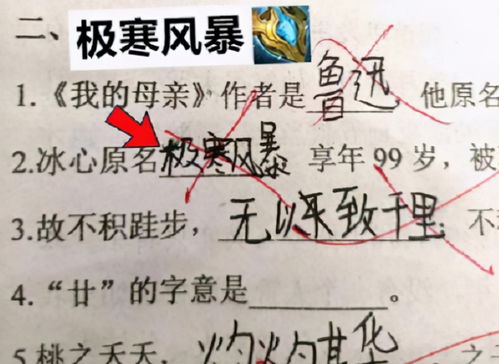 二、极寒风暴
1.《我的母亲》作者是鲁迅,他原名
2.冰心原名极寒风暴 享年99岁,被
3.故不积跬步,无以来致千里;不
4.“廿”的字意是________。
5.桃之夭夭,灼灼其华 之